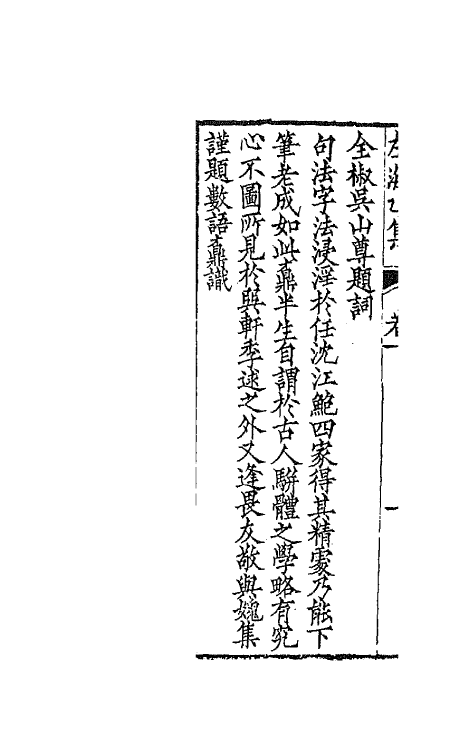 全椒吳山尊題詞
句法字法浸淫於任沈江鮑四家得其精處乃能下
筆老成如此鼒半生自謂於古人駢體之學略有究
心不圖所見於巽軒季逑之外又逢畏友敬與媿集
謹題數語鼒識